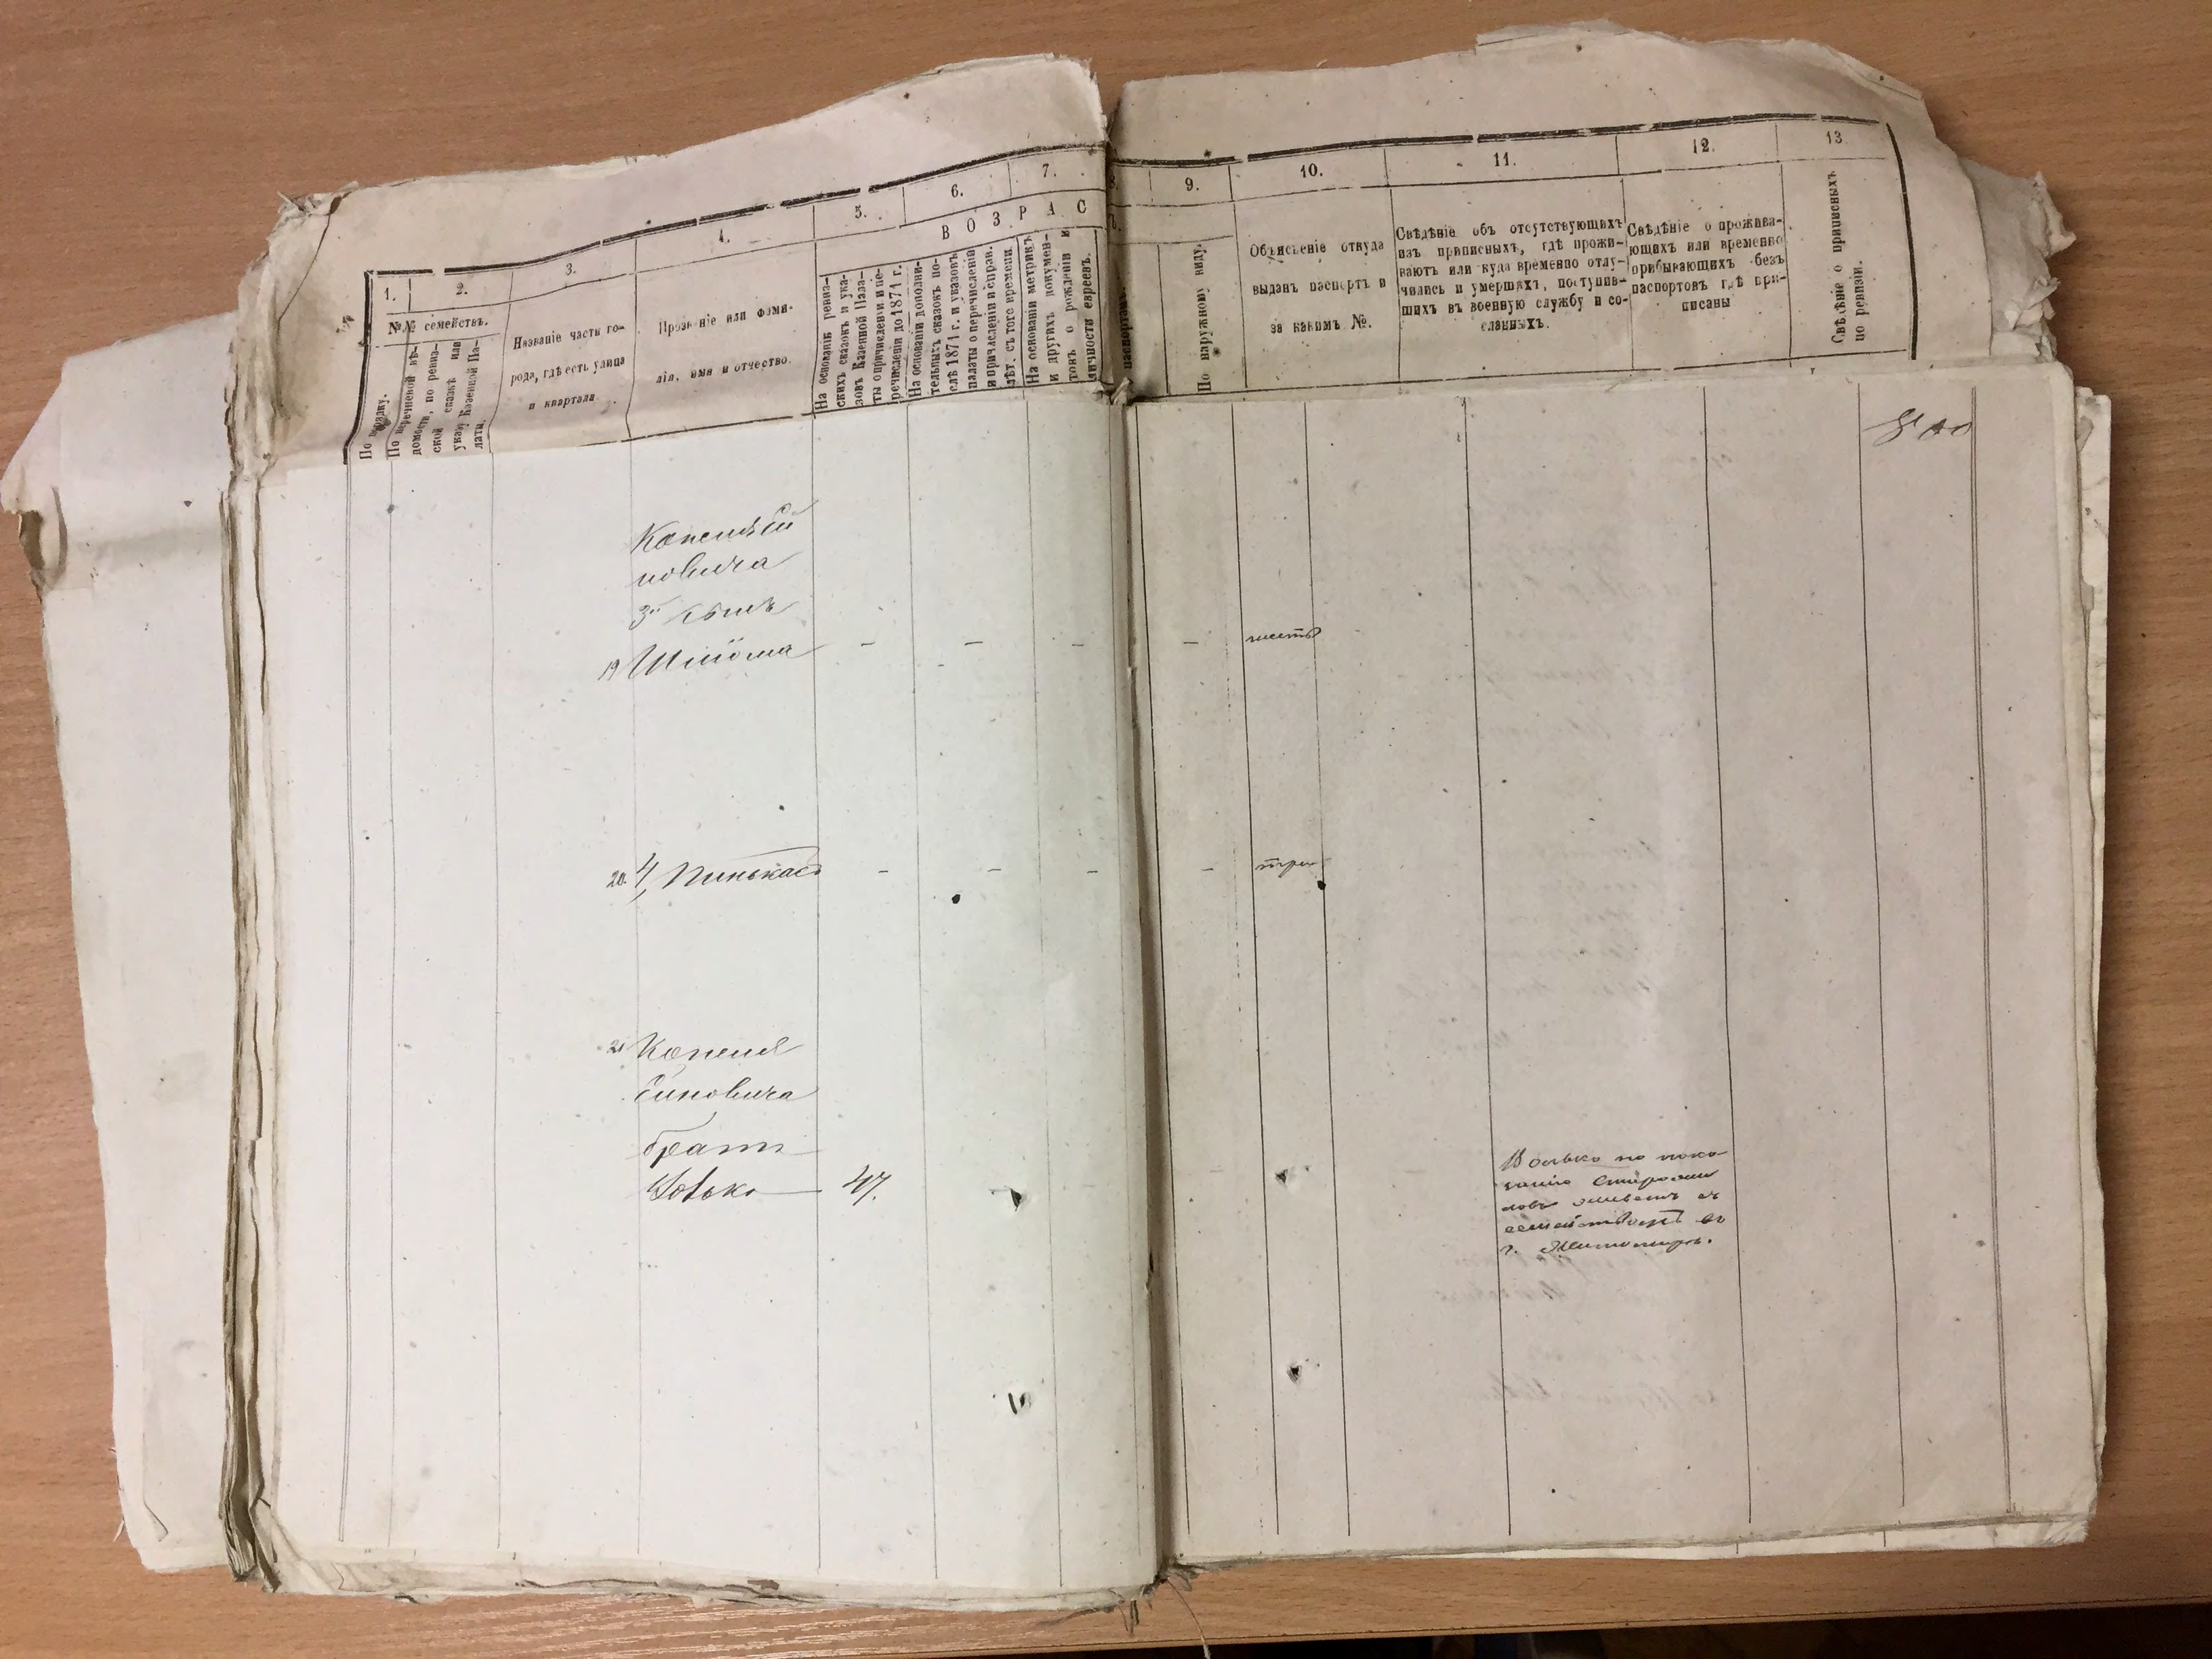 1.
2.
3.
4.
5.
6.
7.
8.
9.
10.
11.
12.
13
№№ семействъ.
По порядку.
По перечневой вѣ-
домости, по ревиз-
ской сказкѣ или
указу Казенной Па-
латы.
Названіе части го-
рода, гдѣ есть улица
и квартала
Прозваніе или фами-
лія, имя и отчество.
В О З Р А С
Ъ.
На основаніи ревиз-
скихъ сказокъ и ука-
зовъ Казенной Пала-
ты о причисленіи и пе-
речисленіи до 1874 г.
На основаніи дополни-
тельныхъ сказокъ по-
слѣ 1874 г. и указовъ
палаты о перечисленіи
и причисленіи и справ.
лѣт. съ того времени.
На основаніи метрикъ
и другихъ докумен-
товъ о рожденіи и
личности евреевъ.
паспортамъ.
По наружному виду.
Объясненіе откуда
выданъ паспортъ и
за какимъ №.
Свѣдѣніе объ отсутствующихъ
изъ приписныхъ, гдѣ прожи-
ваютъ или куда временно отлу-
чились и умершихъ, поступив-
шихъ въ военную службу и со-
сланныхъ.
Свѣдѣніе о прожива-
ющихъ или временно
прибывающихъ безъ
паспортовъ гдѣ при-
писаны
Свѣдѣніе о приписныхъ
по ревизіи.
Копеля Си
новича
3й сынъ
19 Шлiома - - - - шесть
20. 4, Пинькасъ - - - - три
21 Копеля
Синовича
братъ
Волько 47.
Волько по пока-
занію Старожи
ловъ живетъ съ
семействомъ въ
г. Житомирѣ.